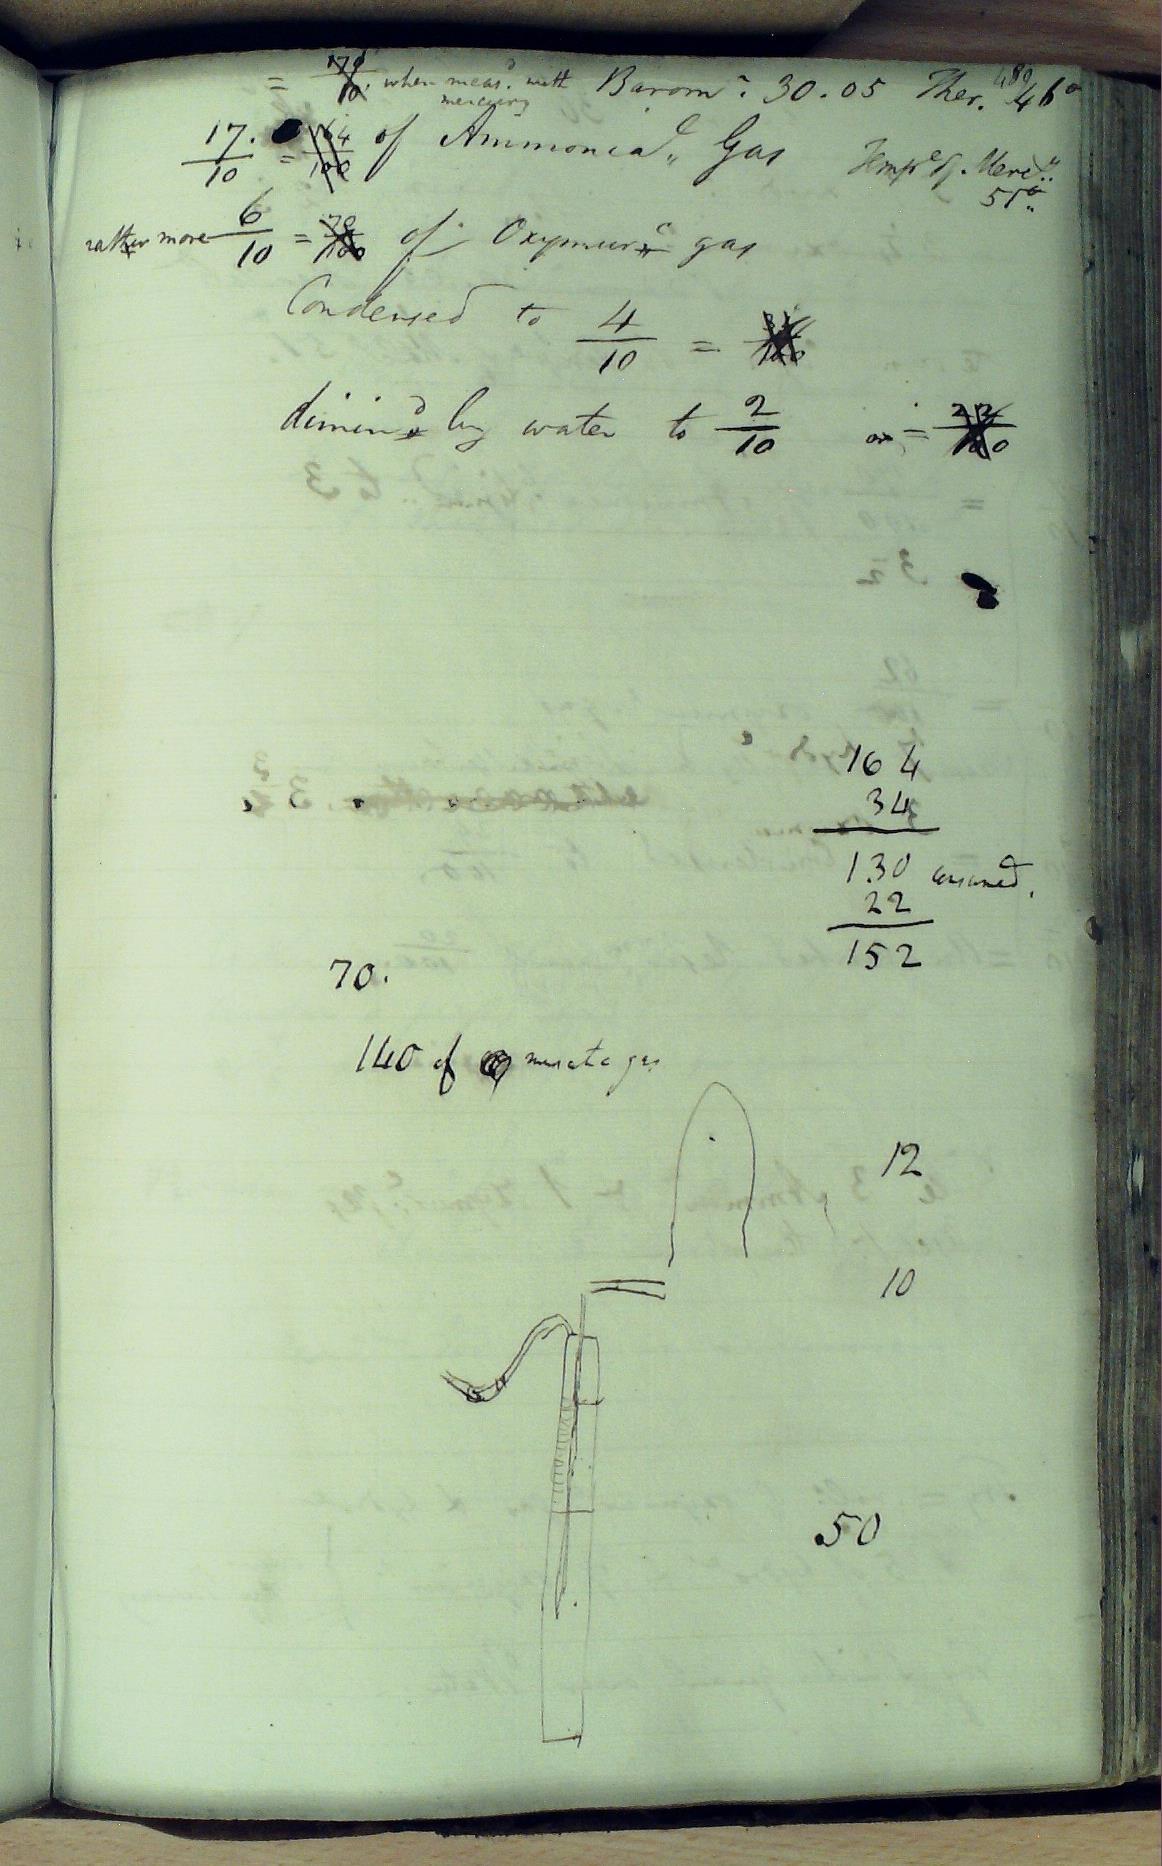 = 170/10 when meas.d with mercury Barom.r 30.05 Ther. 46°
482
17./10 = 164/100 of Ammonia.c Gas Temp.e of. Merc.y 51°
rather more 6/10 = 70/100 of Oxymur.c gas
Condensed to 4/10 =
dimin.d by water to 2/10 or = 22/100
164
34
130 consumed.
22
152
70.
140 of muriatic gas
12
10
50